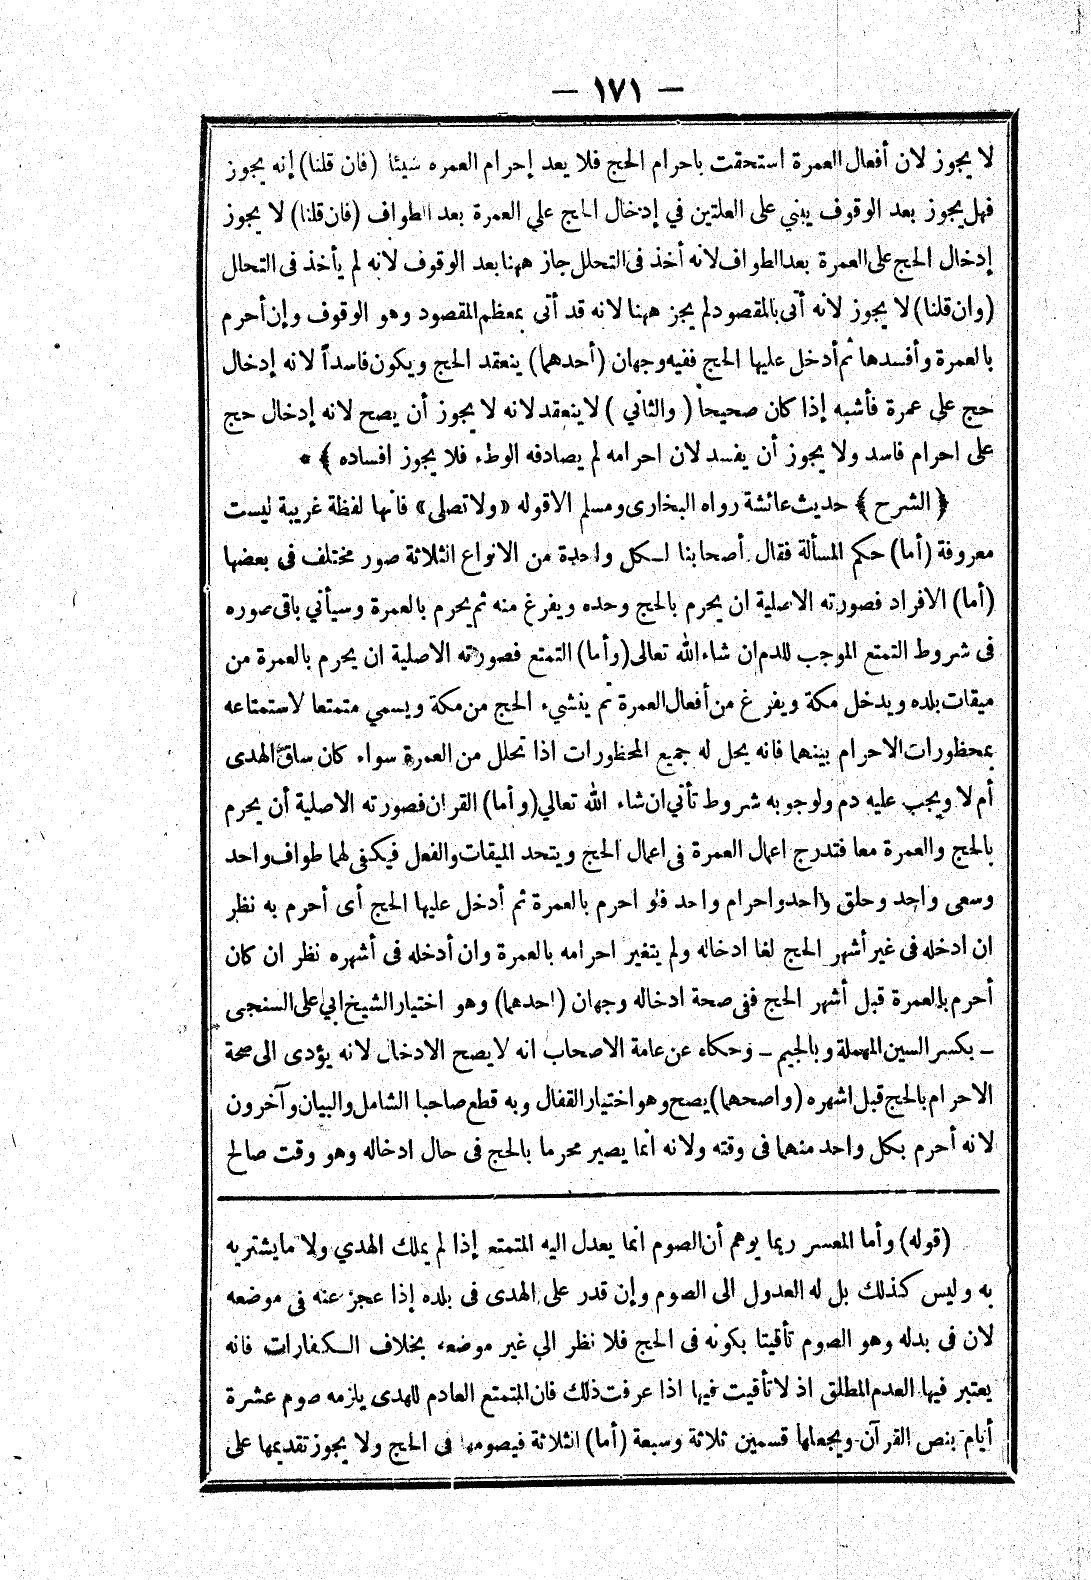 — ١٧١ —
لا يجوز لان أفعال العمرة استحقت باحرام الحج فلا يعد إحرام العمره شيئا (فان قلنا) إنه يجوز
فهل يجوز بعد الوقوف يبني على العلتين في إدخال الحج علي العمرة بعد الطواف (فان قلنا) لا يجوز
إدخال الحج على العمرة بعد الطواف لانه أخذ فى التحلل جاز ههنا بعد الوقوف لانه لم يأخذ فى التحال
(وان قلنا) لا يجوز لانه أتى بالمقصود لم يجز ههنا لانه قد أتى بمعظم المقصود وهو الوقوف وإن أحرم
بالعمرة وأفسدها ثم أدخل عليها الحج ففيه وجهان (أحدهما) ينعقد الحج ويكون فاسداً لانه إدخال
حج على عمرة فأشبه إذا كان صحيحا (والثاني) لا ينعقد لانه لا يجوز أن يصح لانه إدخال حج
على احرام فاسد ولا يجوز أن يفسد لان احرامه لم يصادفه الوطء فلا يجوز افساده ﴾ *
﴿ الشرح ﴾ حديث عائشة رواه البخارى ومسلم الا قوله «ولا تصلى» فانها لفظة غريبة ليست
معروفة (أما) حكم المسألة فقال أصحابنا لـكل واحدة من الانواع الثلاثة صور مختلف فى بعضها
(أما) الافراد فصورته الاصلية ان يحرم بالحج وحده ويفرغ منه ثم يحرم بالعمرة وسيأتي باقى صوره
فى شروط التمتع الموجب للدم ان شاء الله تعالى (وأما) التمتع فصورته الاصلية ان يحرم بالعمرة من
ميقات بلده ويدخل مكة ويفرغ من أفعال العمرة ثم ينشيء الحج من مكة ويسمي متمتعا لاستمتاعه
بمحظورات الاحرام بينهما فانه يحل له جميع المحظورات اذا تحلل من العمرة سواء كان ساق الهدى
أم لا ويجب عليه دم ولوجوبه شروط تأتي ان شاء الله تعالي (وأما) القران فصورته الاصلية أن يحرم
بالحج والعمرة معا فتدرج اعمال العمرة فى اعمال الحج ويتحد الميقات والفعل فيكفى لهما طواف واحد
وسعى واحد وحلق واحد واحرام واحد فلو احرم بالعمرة ثم أدخل عليها الحج أى أحرم به نظر
ان ادخله فى غير أشهر الحج لغا ادخاله ولم يتغير احرامه بالعمرة وان أدخله فى أشهره نظر ان كان
أحرم بالعمرة قبل أشهر الحج ففى صحة ادخاله وجهان (احدهما) وهو اختيار الشيخ ابي على السنجى
ـ بكسر السين المهملة وبالجيم ـ وحكاه عن عامة الاصحاب انه لا يصح الادخال لانه يؤدى الى صحة
الاحرام بالحج قبل اشهره (واصحهما) يصح وهو اختيار القفال وبه قطع صاحبا الشامل والبيان وآخرون
لانه أحرم بكل واحد منهما فى وقته ولانه انما يصير محرما بالحج فى حال ادخاله وهو وقت صالح
(قوله) وأما المعسر ربما يوهم أن الصوم انما يعدل اليه المتمتع إذا لم يملك الهدي ولا ما يشتريه
به وليس كذلك بل له العدول الى الصوم وإن قدر على الهدى فى بلده إذا عجز عنه فى موضعه
لان فى بدله وهو الصوم تأقيتا بكونه فى الحج فلا نظر الي غير موضعه بخلاف الـكفارات فانه
يعتبر فيها العدم المطلق اذ لا تأقيت فيها اذا عرفت ذلك فان المتمتع العادم للهدى يلزمه صوم عشرة
أيام بنص القرآن ويجعلها قسمين ثلاثة وسبعة (أما) الثلاثة فيصومها فى الحج ولا يجوز تقديمها على